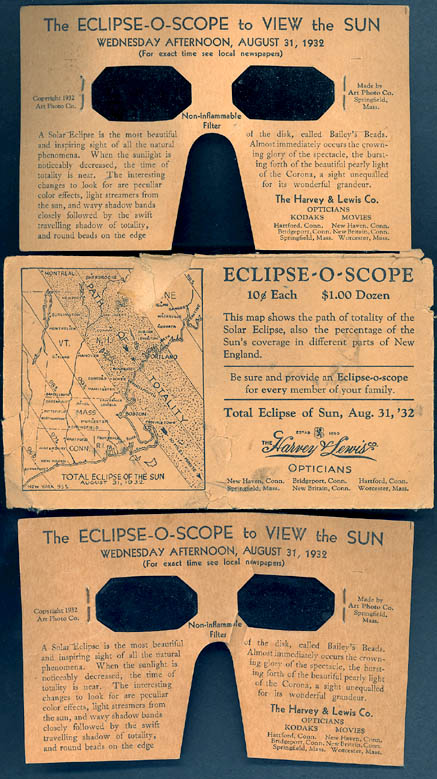 The ECLIPSE-O-SCOPE to VIEW the SUN
WEDNESDAY AFTERNOON, AUGUST 31, 1932
(For exact time see local newspapers)
Copyright 1932
Art Photo Co.
Made by
Art Photo Co.
Springfield,
Mass.
Non-inflammable
Filter
A Solar Eclipse is the most beautiful
and inspiring sight of all the natural
phenomena. When the sunlight is
noticeably decreased, the time of
totality is near. The interesting
changes to look for are peculiar
color effects, light streamers from
the sun, and wavy shadow bands
closely followed by the swift
travelling shadow of totality,
and round beads on the edge
of the disk, called Bailey's Beads.
Almost immediately occurs the crown-
ing glory of the spectacle, the burst-
ing forth of the beautiful pearly light
of the Corona, a sight unequalled
for its wonderful grandeur.
The Harvey & Lewis Co.
OPTICIANS
KODAKS MOVIES
Hartford, Conn. New Haven, Conn.
Bridgeport, Conn. New Britain, Conn.
Springfield, Mass. Worcester, Mass.
MONTREAL
PATH OF
TOTALITY
VT.
N.H.
MASS
CONN.
R.I.
BOSTON
NEW YORK 95%
TOTAL ECLIPSE OF THE SUN
AUGUST 31, 1932
ECLIPSE-O-SCOPE
10¢ Each $1.00 Dozen
This map shows the path of totality of the
Solar Eclipse, also the percentage of the
Sun's coverage in different parts of New
England.
Be sure and provide an Eclipse-o-scope
for every member of your family.
Total Eclipse of Sun, Aug. 31, '32
ESTAB. 1890
THE Harvey & Lewis CO.
OPTICIANS
New Haven, Conn. Bridgeport, Conn. Hartford, Conn.
Springfield, Mass. New Britain, Conn. Worcester, Mass.
The ECLIPSE-O-SCOPE to VIEW the SUN
WEDNESDAY AFTERNOON, AUGUST 31, 1932
(For exact time see local newspapers)
Copyright 1932
Art Photo Co.
Made by
Art Photo Co.
Springfield,
Mass.
Non-inflammable
Filter
A Solar Eclipse is the most beautiful
and inspiring sight of all the natural
phenomena. When the sunlight is
noticeably decreased, the time of
totality is near. The interesting
changes to look for are peculiar
color effects, light streamers from
the sun, and wavy shadow bands
closely followed by the swift
travelling shadow of totality,
and round beads on the edge
of the disk, called Bailey's Beads.
Almost immediately occurs the crown-
ing glory of the spectacle, the burst-
ing forth of the beautiful pearly light
of the Corona, a sight unequalled
for its wonderful grandeur.
The Harvey & Lewis Co.
OPTICIANS
KODAKS MOVIES
Hartford, Conn. New Haven, Conn.
Bridgeport, Conn. New Britain, Conn.
Springfield, Mass. Worcester, Mass.